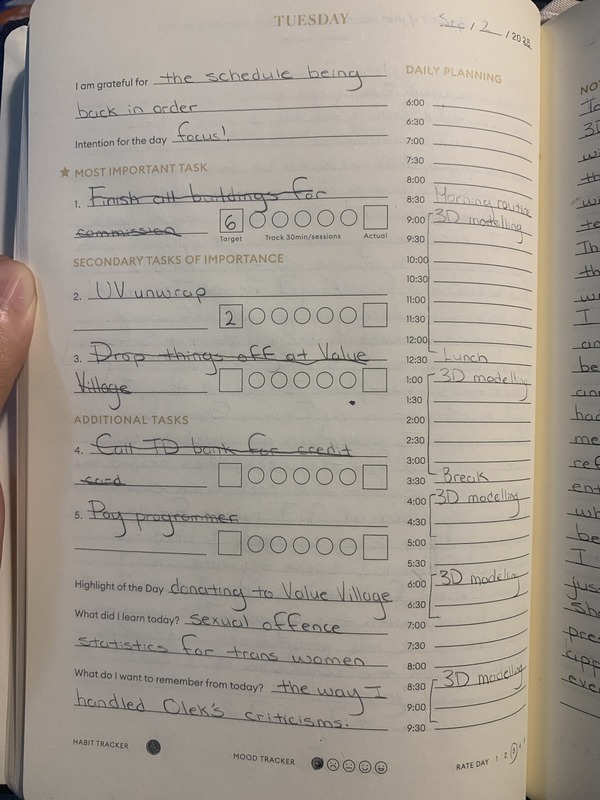 TUESDAY
Sep / 2 / 202
I am grateful for the schedule being
back in order
Intention for the day focus!
MOST IMPORTANT TASK
1. Finish all buildings for
commission
6
Target Track 30min/sessions Actual
SECONDARY TASKS OF IMPORTANCE
2. UV unwrap
2
3. Drop things off at Value
Village
ADDITIONAL TASKS
4. Call TD bank for credit
card
5. Pay programmer
Highlight of the Day donating to Value Village
What did I learn today? sexual offence
statistics for trans women
What do I want to remember from today? the way I
handled Olek's criticisms.
HABIT TRACKER
MOOD TRACKER
DAILY PLANNING
6:00
6:30
7:00
7:30
8:00
8:30 Morning routine
9:00 3D modelling
9:30
10:00
10:30
11:00
11:30
12:00
12:30 Lunch
1:00 3D modelling
1:30
2:00
2:30
3:00
3:30 Break
4:00 3D modelling
4:30
5:00
5:30
6:00 3D modeling
6:30
7:00
7:30
8:00
8:30 3D modelling
9:00
9:30
RATE DAY 1 2 3 4 5
NO
3D
I
I